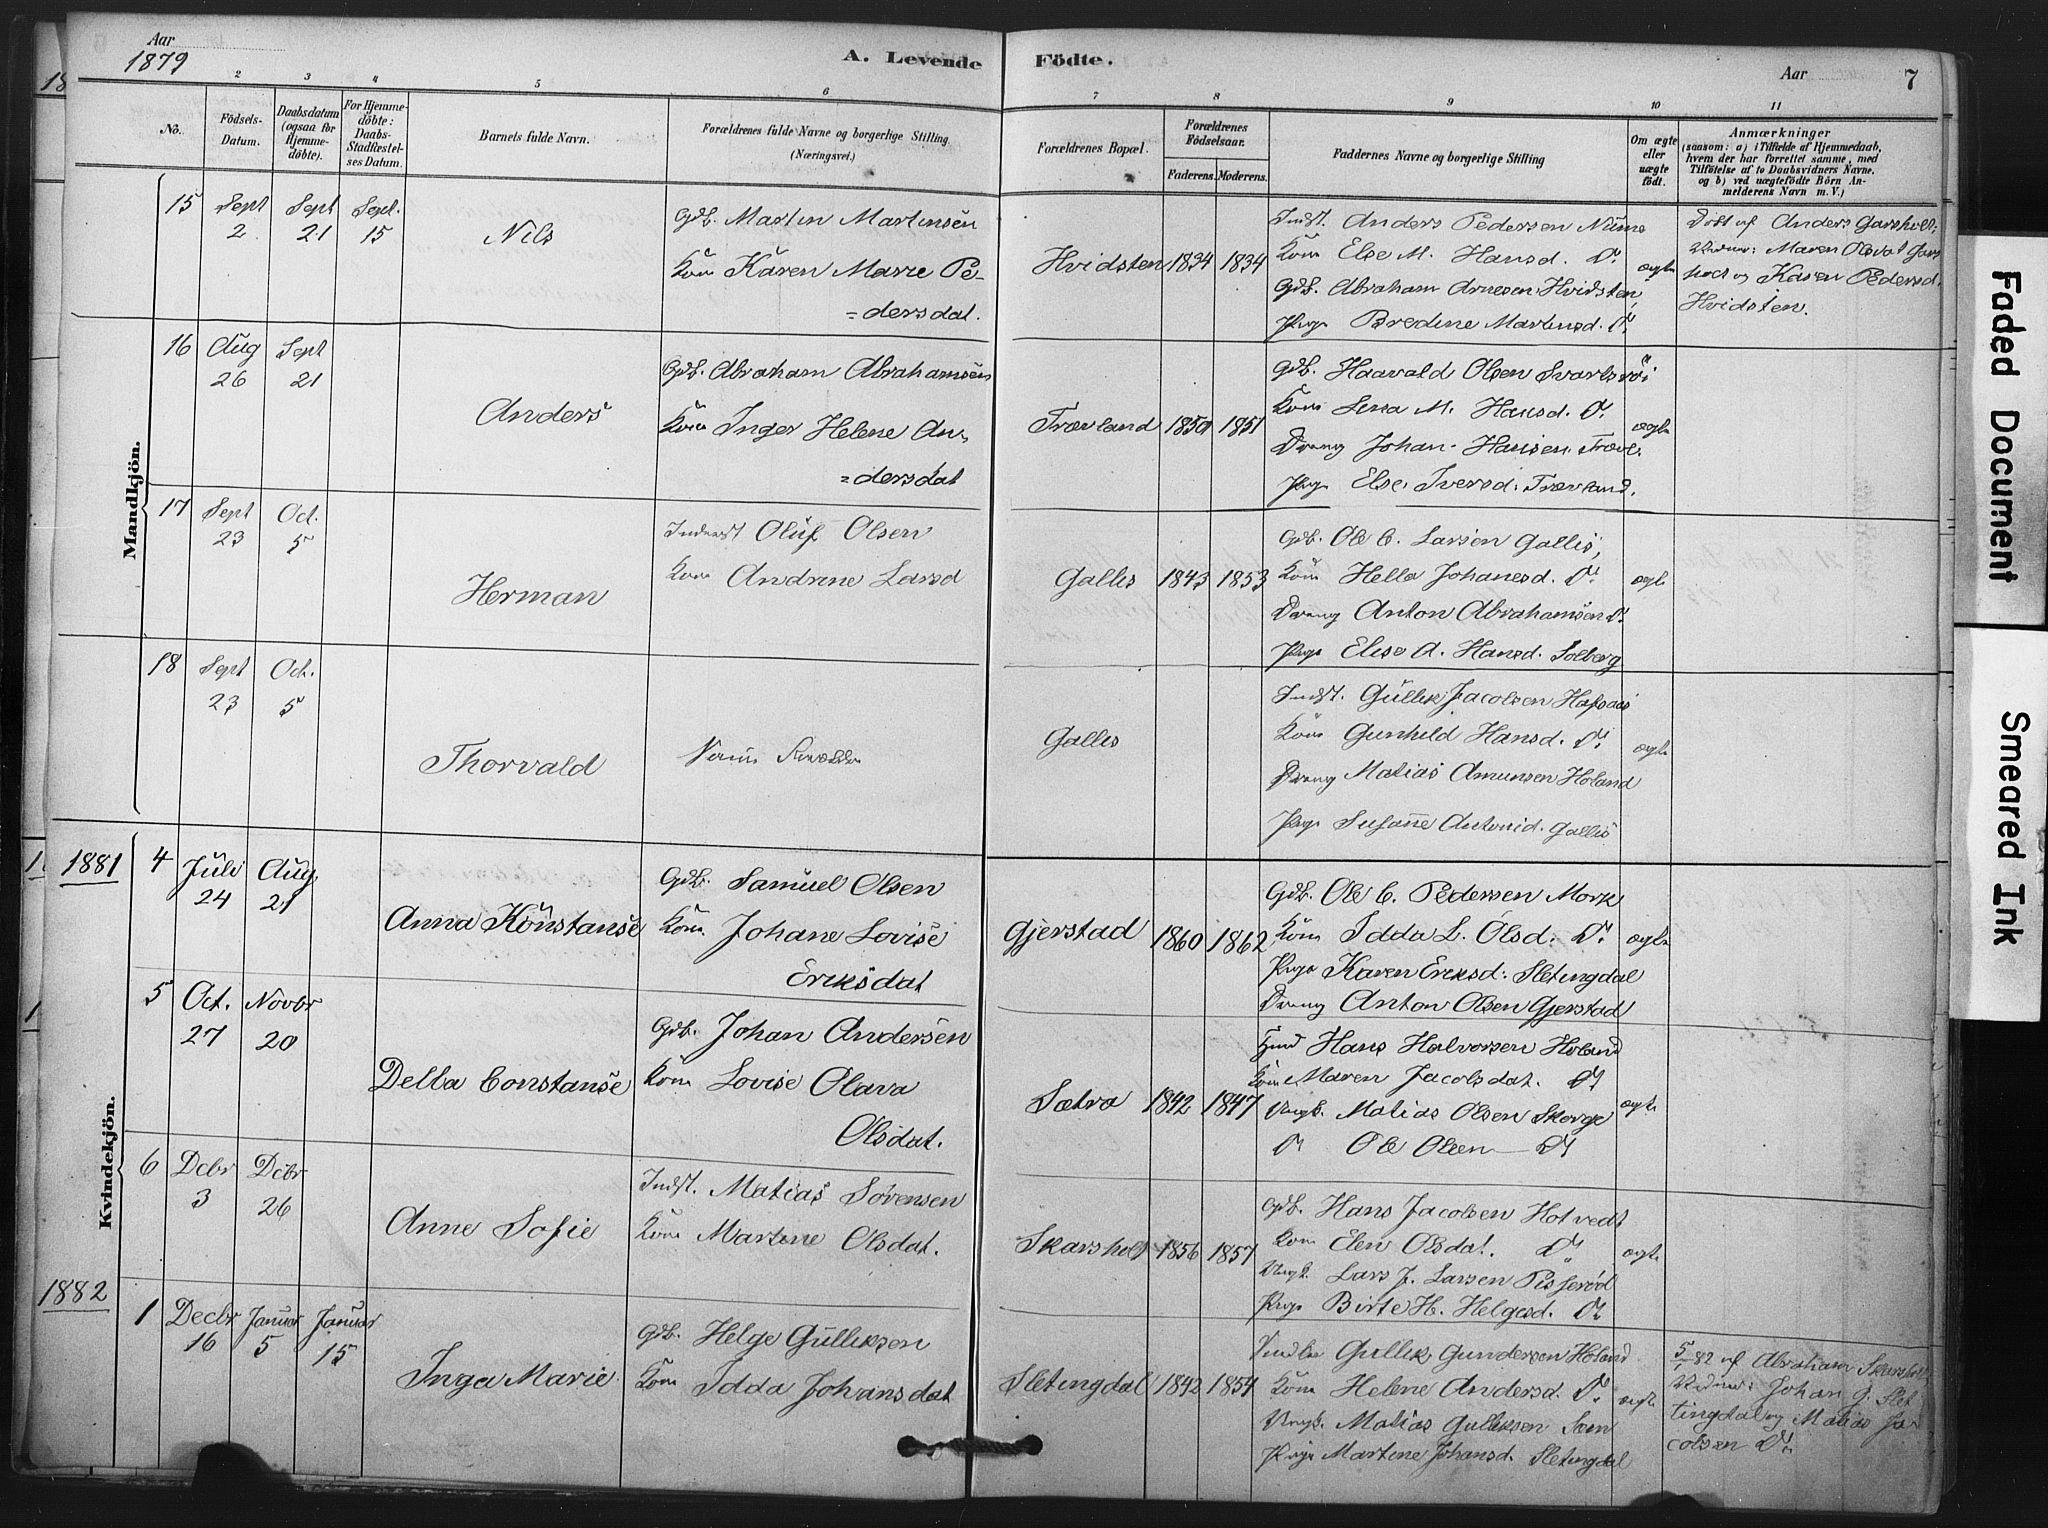 Aar
1879
A. Levende Födte.
Aar
7
2 3 4 5 6 7 8 9 10 11
No.
Födsels-Datum.
Daabsdatum (ogsaa for Hjemmedöbte).
For Hjemmedöbte: Daabs-Stadfæstelses Datum.
Barnets fulde Navn.
Forældrenes fulde Navne og borgerlige Stilling (Næringsvei.)
Forældrenes Bopæl.
Forældrenes Födselsaar.
Faderens. Moderens.
Faddernes Navne og borgerlige Stilling
Om ægte eller uægte födt.
Anmærkninger
(saasom: a) i Tilfælde af Hjemmedaab,
hvem der har forrettet samme, med
Tilföielse af to Daabsvidners Navne,
og b) ved uægtefödte Börn An-
melderens Navn m. V.)
Mandkjön.
15 Sept 2 Sept 21 Sept. 15
Nils
Gdb. Martin Martinsen
Kone Karen Marie Pe-
=dersdat.
Hvidsten 1834 1834
Indst. Anders Pedersen
Kone Else M. Hansd. Do
Gdb. Abraham Arnesen Hvidsten
Pige Bredine Martinsd. Do
ægte
Døbt af Anders Garsholt
Maren Olsdat Gars
holt og Karen Pedersd.
Hvidsten.
16 Aug 26 Sept 21
Anders
Gdb. Abraham Abrahamsen
Kone Inger Helene An-
=dersdat
Trævland 1850 1851
Gdb. Haavald Olsen
Kone Lena M. Hansd. Do
Dreng Johan Hansen Trævl.
Pige Else Iversd. Trævland.
ægte
17 Sept 23 Oct. 5
Herman
Inderst Oluf Olsen
Kone Andrine Larsd
Gallis 1843 1853
Gdb. Ole C. Larsen Gallis,
Kone Hella Johanesd. Do
Dreng Anton Abrahamsen Do
Pige Elise A. Hansd. Solberg
ægte
18 Sept 23 Oct. 5
Thorvald
Gallis
Indst. Gullik Jacobsen
Kone Gunhild Hansd. Do
Dreng Matias Amunsen Holand
Pige Susanne Antonid. Gallis
ægte
Kvindekjön.
1881
4 Juli 24 Aug. 21
Anna Konstanse
Gdb. Samuel Olsen
Kone Johane Lovise
Eriksdat
Gjerstad 1860 1862
Gdb. Ole C. Pedersen Mork
Kone Idda L. Olsd. Do
Pige Karen Eriksd. Sletingdal
Dreng Anton Olsen Gjerstad
ægte
5 Oct. 27 Novbr 20
Della Constanse
Gdb. Johan Andersen
Kone Lovise Olava
Olsdat.
Sætra 1842 1847
Hans Halvorsen Holand
Kone Maren Jacobsdat. Do
Ungk. Matias Olsen Skorge
Do Ole Olsen Do
ægte
6 Dcbr 3 Dcbr 26
Anne Sofie
Indst. Matias Sørensen
Kone Martine Olsdat.
Skarsholt 1856 1857
Gdb. Hans Jacobsen Hotvedt
Kone Elen Olsdat. Do
Ungk. Lars J. Larsen
Pige Birte H. Helgesd. Do
ægte
1882
1 Decbr 16 Januar 5 Januar 15
Inga Marie
Gdb. Helge Gulliksen
Kone Idda Johansdat
Sletingdal 1842 1854
Gullik Gundersen Holand
Kone Helene Andersd. Do
Ungk. Matias Gulliksen
Pige Martine Johansd. Sletingdal
ægte
5/1 82 af Abraham Skarsholt
Johan G. Slet
tingdal og Matias Ja-
cobsen Do
Faded Document
Smeared Ink